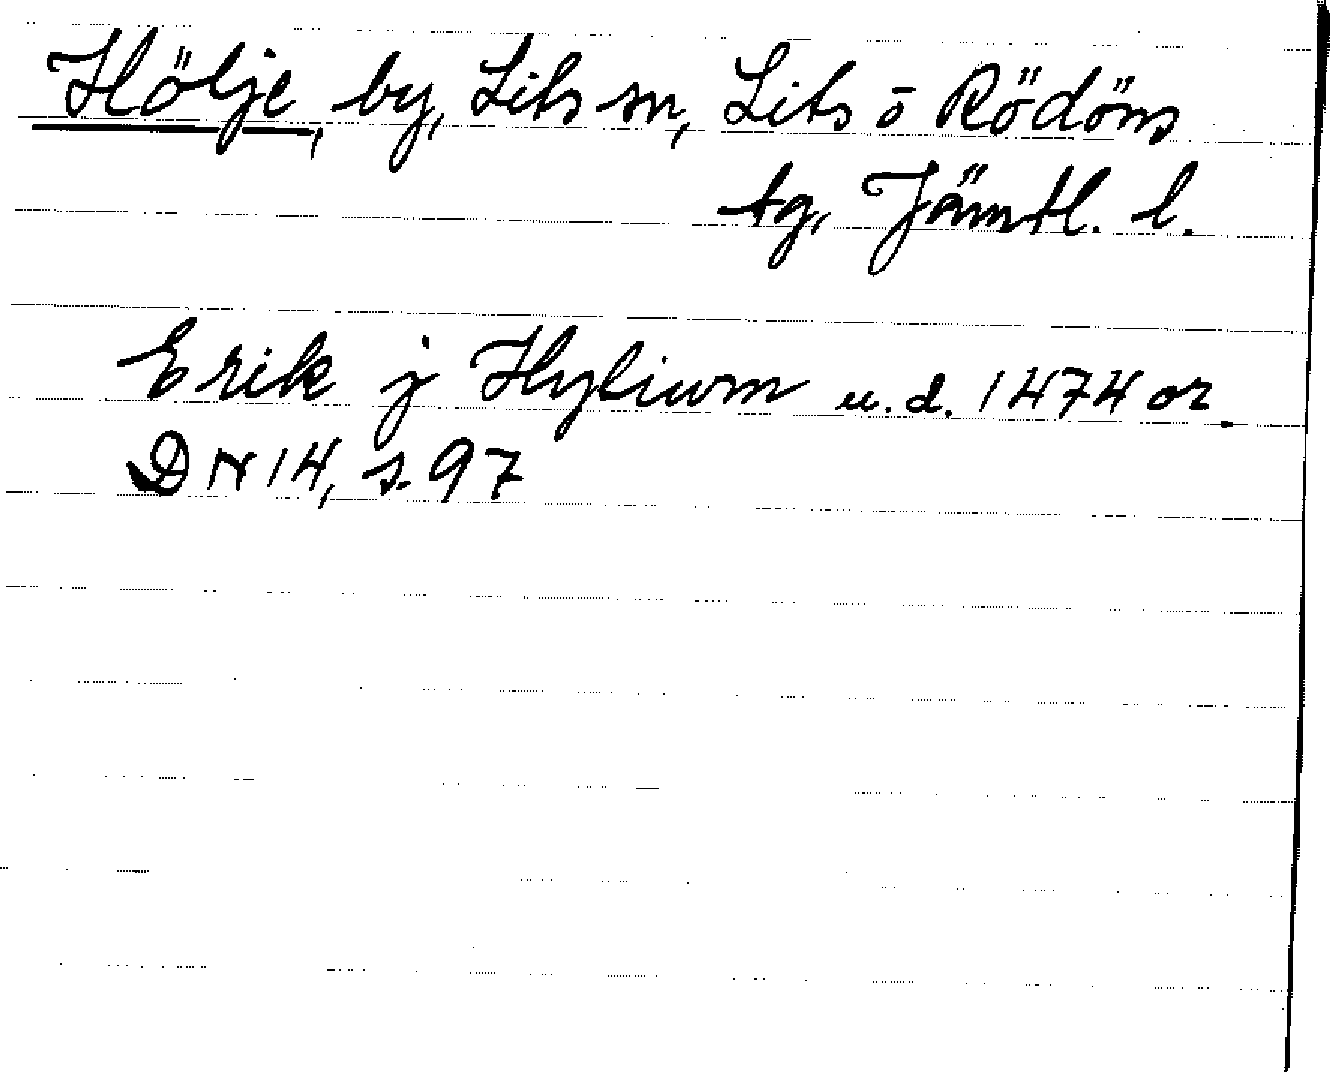 Hölje, by, Lits sn, Lits o Rödöns
tg, Jämtl. l.
Erik j Hyliwm u.d. 1474 or
DN 14, s. 97